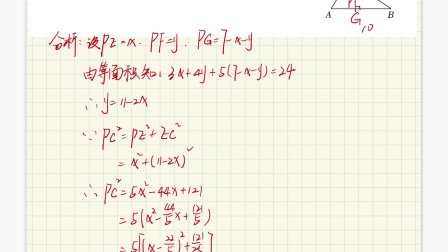 P
G 1,0
A B
分析:设PE=x. PF=y. PG=7-x-y
由等面积知: 3x+4y+5(7-x-y)=24
∴y=11-2x
∵PC²=PE²+EC²
=x²+(11-2x)²
∴PC²=5x²-44x+121
=5(x²-44/5x+121/5)
=5[(x-22/5)²+121/25]